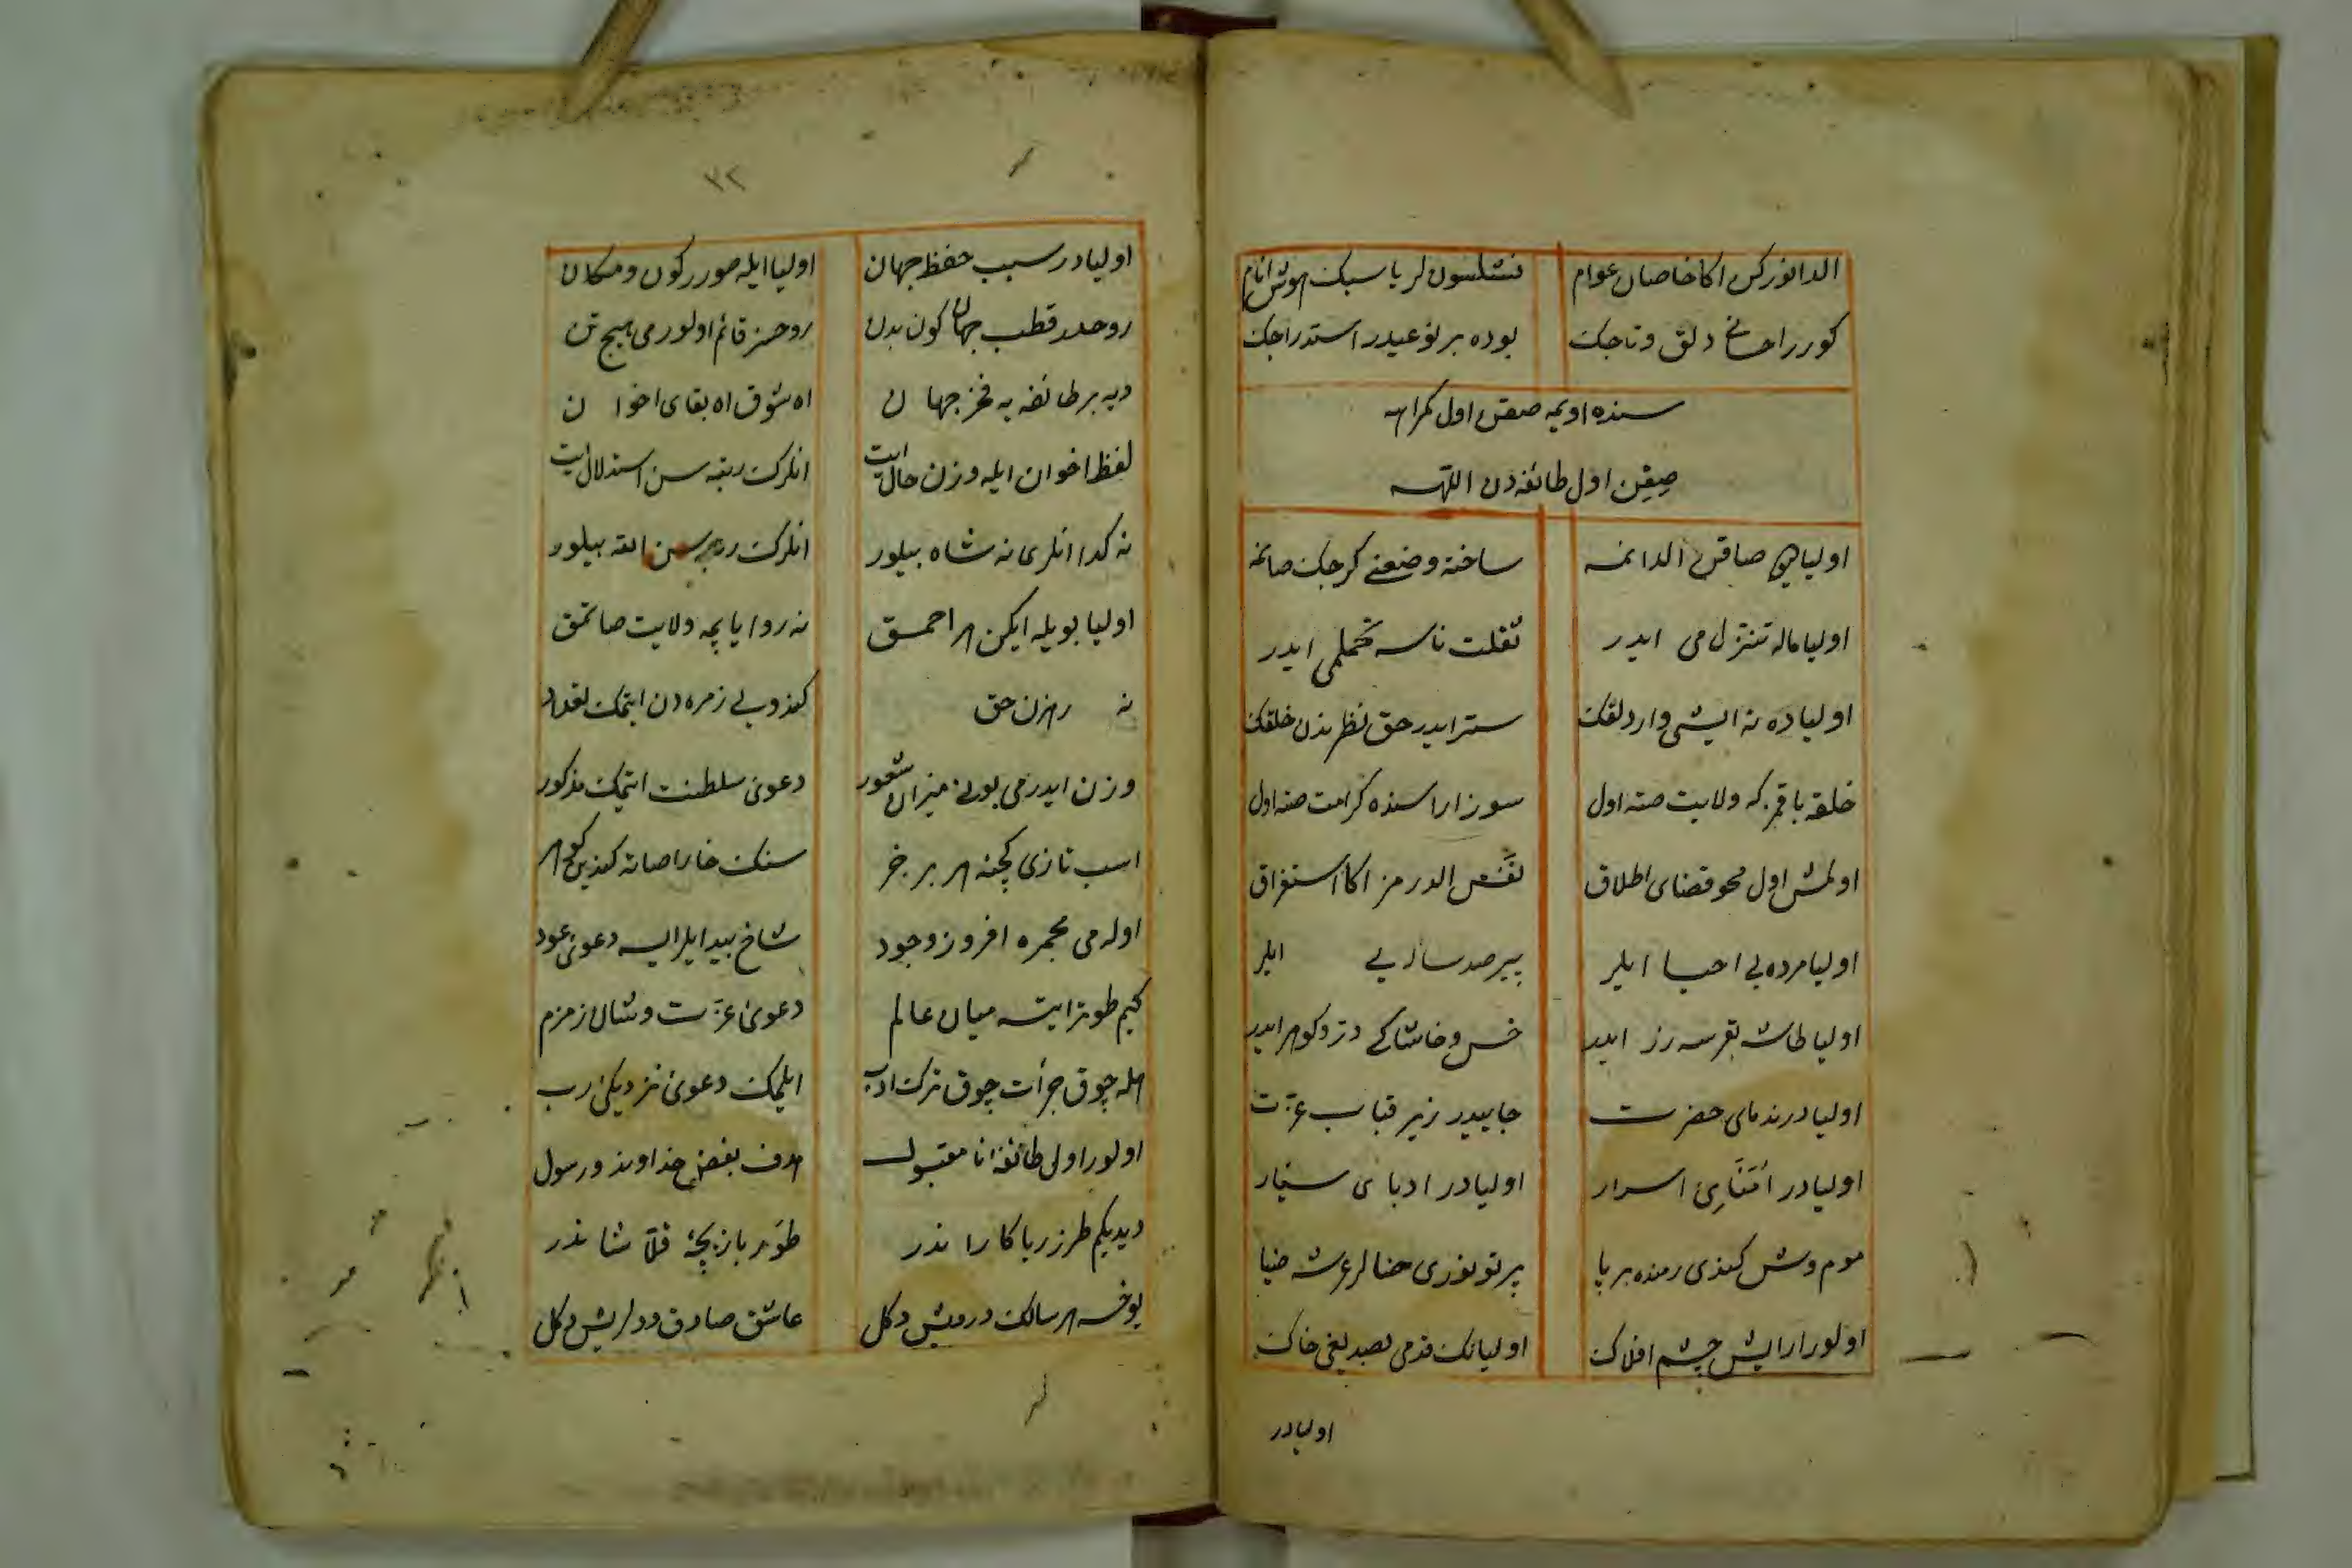 الدانورکن اکا خاصان عوام نشلسون لر یا سبک هوش انام
کورر راحتی دلق و تاجک بوده بر نوعیدر استدراجک
سنده اویمه صقن اول کمراهه
صقن اول طائفه دن اللهه
اولیا صاقن الدانمه ساخته وضعنی کرجک صانمه
اولیا ماله تنزل می ایدر ثقلت ناسه تحملمی ایدر
اولیاده نه ایشی وار دلقک ستر ایدر حق نظرندن خلقک
خلقه باقمز که ولایت صته اول سوز اراسنده کرامت صته اول
اولمش اول محو فضای اطلاق نفس الدرمز اکا استغراق
اولیا مرده یی احیا ایلر پیر صد ساله یی ایلر
اولیا طاشه بقرسه زر ایدر خس و خاشاکی در و کوهر ایدر
اولیادر ندمای حضرت جاییدر زیر قباب عزت
اولیادر امنای اسرار اولیادر ادبای سیار
موم وش کندی رمنده بر پا پرتو نوری صالر عرشه ضیا
اولور ارایش چشم افلاک اولیانک قدمی بصدیغی خاک
اولیادر
٣٢
اولیادر سبب حفظ جهان اولیا ایله طورر کون و مکان
روحدر قطب جهان کون بدن روحسز قائم اولورمی هیچ تن
دیه بر طائفه یه فخر جهان اه شوق اه بقای اخوان
لفظ اخوان ایله وزن حال ایت انلرک رتبه سن استدلال ایت
نه کدا انلری نه شاه بیلور انلرک رتبه سن الله بیلور
اولیا بویله ایکن هر احمق نه روا یا پمه ولایت صاتمق
نه رهزن حق کندویی زمره دن ایتمک تعداد
وزن ایدرمی بونی میزان شعور دعوی سلطنت ایتمک مذکور
اسب تازی کچنه هر بر خر سنک خارا صاته کندین کوهر
اوله می مجمره افروز وجود شاخ بید ایلر ایسه دعوی عود
کیم طوتر ایتسه میان عالم دعوی عزت و شان زمزم
هله چوق جرأت چوق ترک ادب ایلمک دعوی نزدیکی رب
اولور اولی طائفه نا مقبول هدف بغض خداوند و رسول
دیدیکم طرز ریاکاراندر طور بازیچۀ قلاشاندر
یوخسه هر سالک درویش دکل عاشق صادق و دلریش دکل